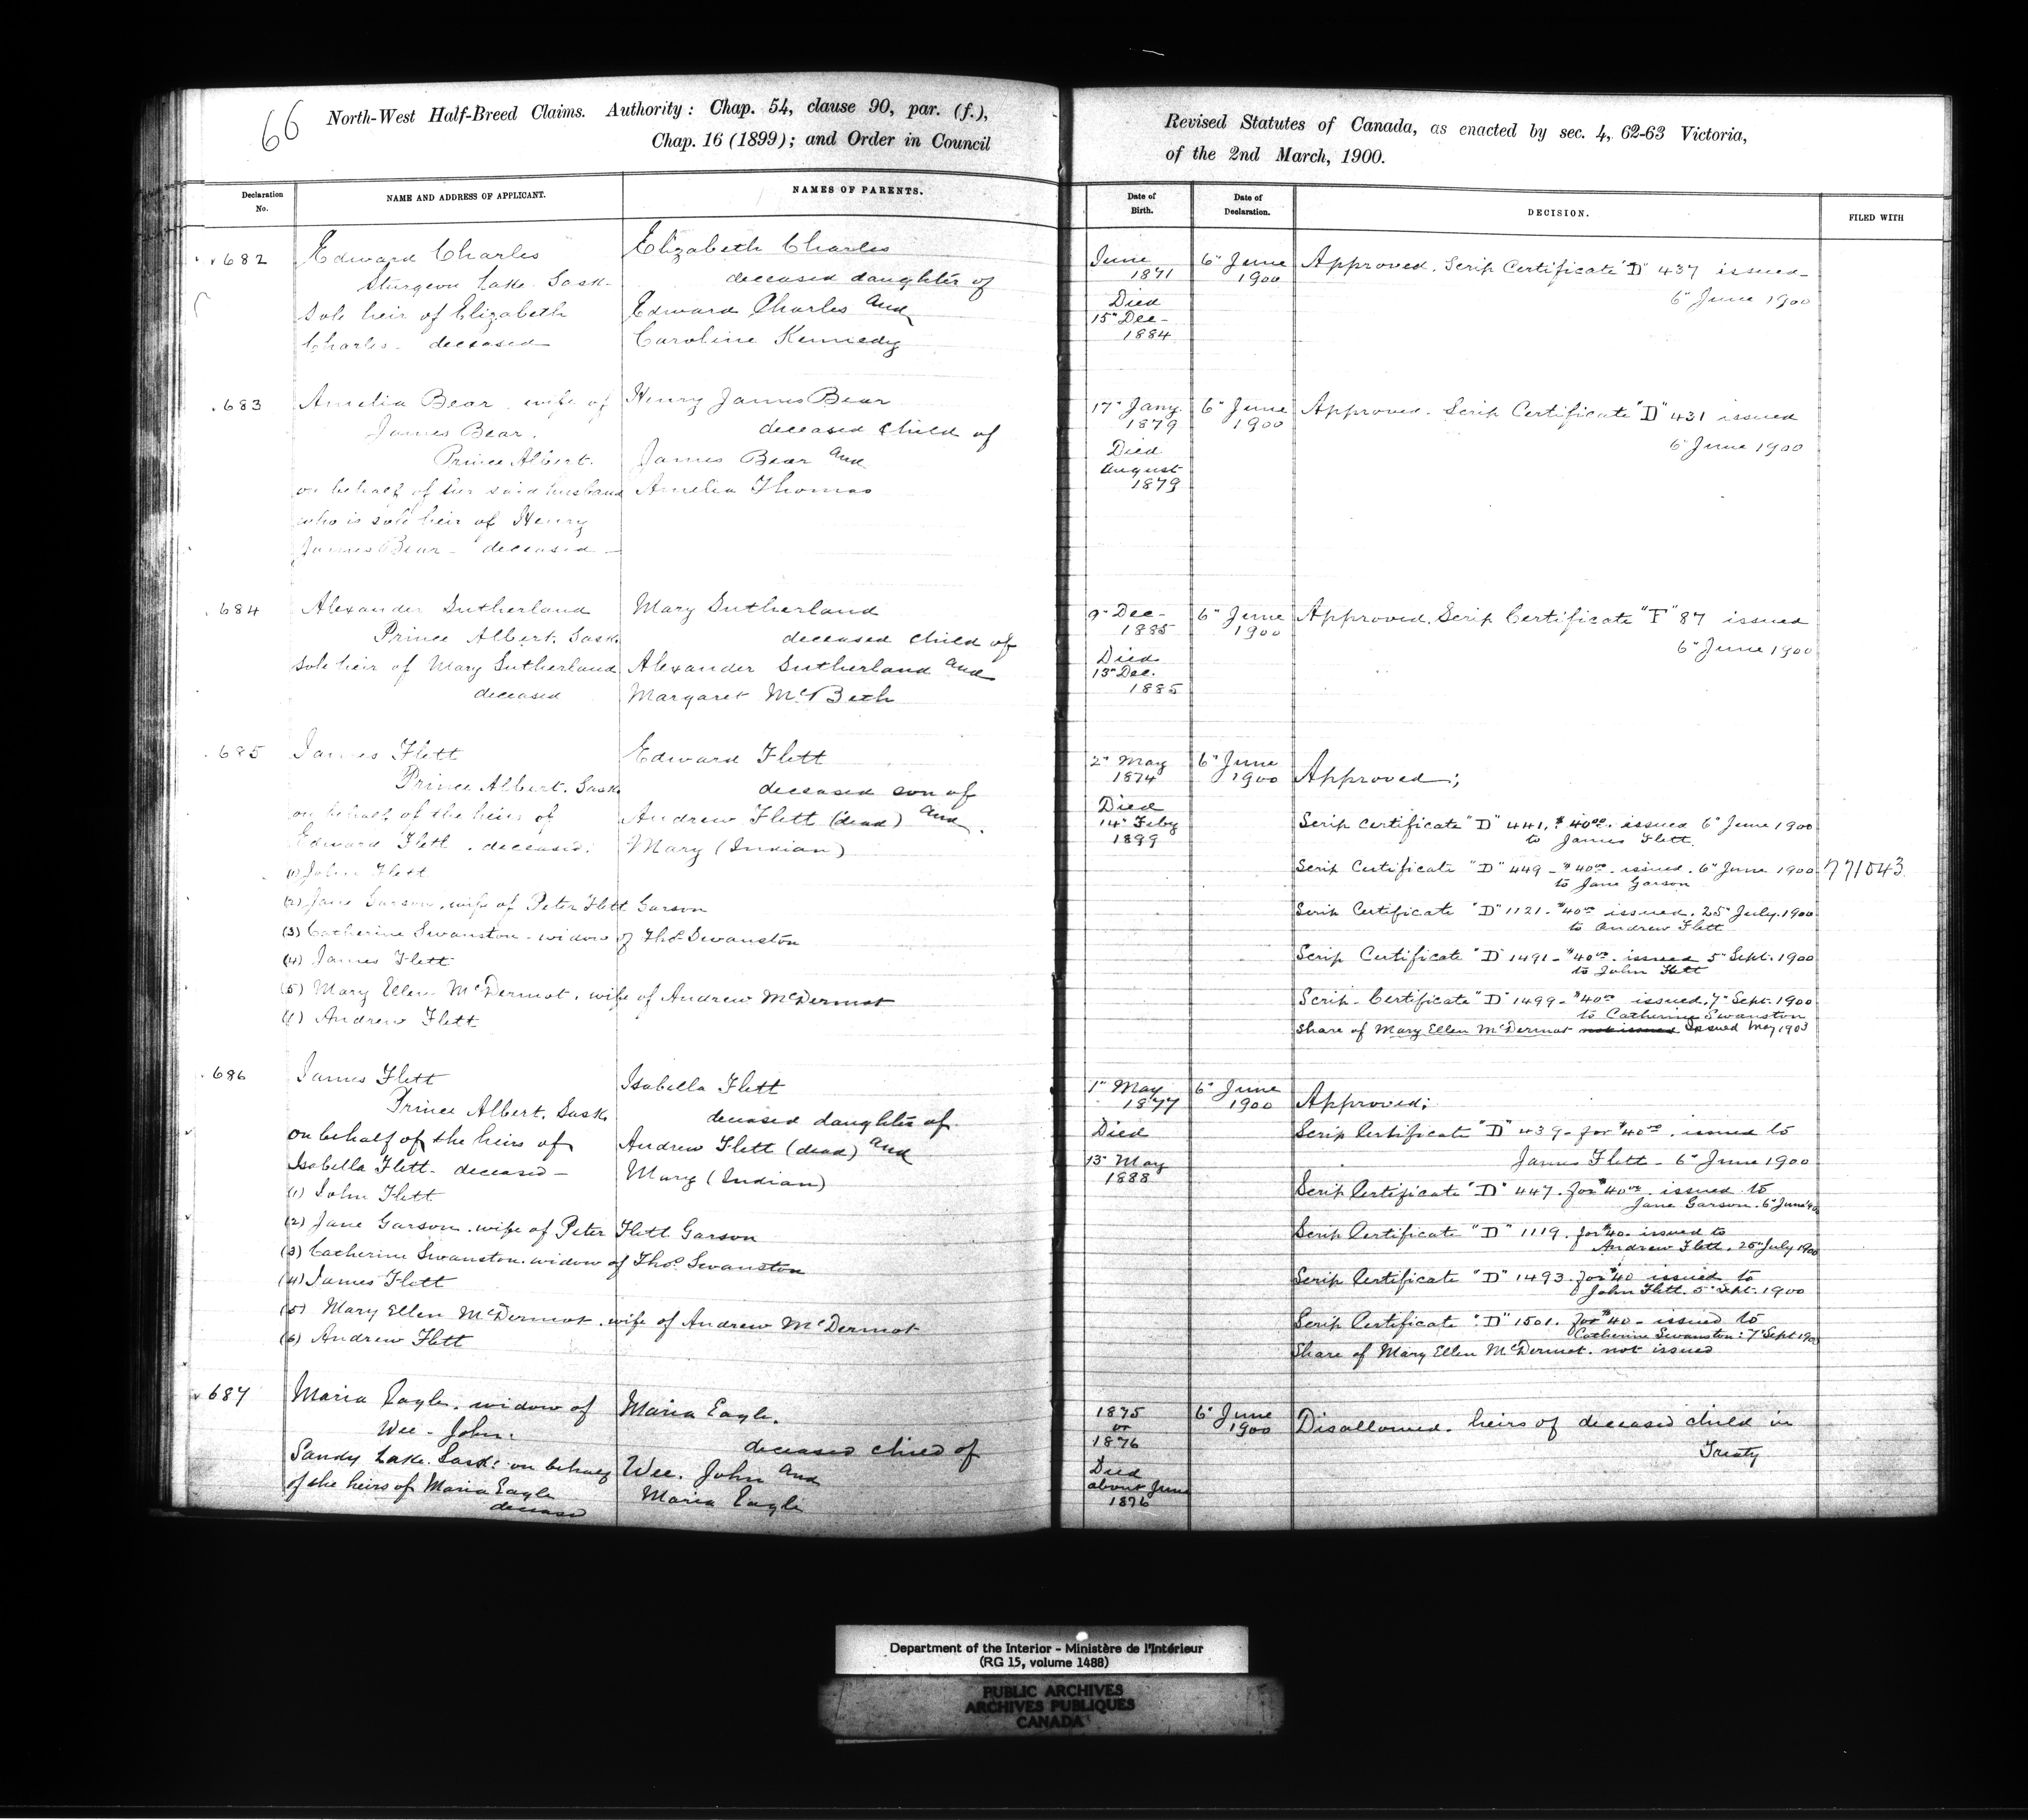 66
North-West Half-Breed Claims. Authority: Chap. 54, clause 90, par. (f.),
Chap. 16 (1899); and Order in Council
Revised Statutes of Canada, as enacted by sec. 4, 62-63 Victoria,
of the 2nd March, 1900.
Declaration No.
NAME AND ADDRESS OF APPLICANT.
NAMES OF PARENTS.
Date of Birth.
Date of Declaration.
DECISION.
FILED WITH
682
Edward Charles
Sturgeon Lake. Sask.
sole heir of Elizabeth
Charles. deceased
Elizabeth Charles
deceased daughter of
Edward Charles and
Caroline Kennedy
June
1871
Died
15" Dec-
1884
6" June
1900
Approved. Scrip Certificate "D" 437 issued
6" June 1900
683
Amelia Bear. wife of
James Bear.
Prince Albert.
on behalf of her said husband
who is sole heir of Henry
James Bear - deceased -
Henry James Bear
deceased child of
James Bear and
Amelia Thomas
17" Jany.
1879
Died
August
1879
6" June
1900
Approved. Scrip Certificate "D" 431 issued
6" June 1900
684
Alexander Sutherland
Prince Albert. Sask
sole heir of Mary Sutherland
deceased
Mary Sutherland
deceased child of
Alexander Sutherland and
Margaret McBeth
9" Dec-
1885
Died
13" Dec.
1885
6" June
1900
Approved. Scrip Certificate "F" 87 issued
6" June 1900
685
James Flett
Prince Albert. Sask
on behalf of the heirs of
Edward Flett. deceased.
(1) John Flett
(2) Jane Garson. wife of Peter Flett Garson
(3) Catherine Swanston - widow of Thos. Swanston
(4) James Flett
(5) Mary Ellen McDermot. wife of Andrew McDermot
Andrew Flett
Edward Flett
deceased son of
Andrew Flett (dead) and
Mary (Indian)
2" May
1874
Died
14" Feby
1899
6" June
1900
Approved;
Scrip Certificate "D" 441. $40.00. issued 6" June 1900
to James Flett.
Scrip Certificate "D" 449 - $40.00. issued. 6" June 1900
to Jane Garson
771043
Scrip Certificate "D" 1121 - $40.00 issued. 25" July. 1900
to Andrew Flett
Scrip Certificate "D" 1491 - $40.00. issued 5" Sept. 1900
to John Flett
Scrip Certificate "D" 1499 - $40.00 issued. 7" Sept. 1900
to Catherine Swanston
Share of Mary Ellen McDermot not issued Issued May 1903
686
James Flett
Prince Albert. Sask
on behalf of the heirs of
Isabella Flett - deceased -
(1) John Flett
(2) Jane Garson. wife of Peter Flett Garson
(3) Catherine Swanston. widow of Thos. Swanston
(4) James Flett
(5) Mary Ellen McDermot. wife of Andrew McDermot
(6) Andrew Flett
Isabella Flett
deceased daughter of
Andrew Flett (dead) and
Mary (Indian)
1" May
1877
Died
13" May
1888
6" June
1900
Approved;
Scrip Certificate "D" 439 - for $40.00. issued to
James Flett - 6" June 1900
Scrip Certificate "D" 447. for $40.00. issued to
Jane Garson. 6" June
Scrip Certificate "D" 1119. for $40. issued to
Andrew Flett. 25" July 1900
Scrip Certificate "D" 1493. for $40 issued to
John Flett. 5" Sept. 1900
Scrip Certificate "D" 1501. for $40 - issued to
Catherine Swanston: 7" Sept 1900
Share of Mary Ellen McDermot. not issued
687
Maria Eagle. widow of
Wee - John.
Sandy Lake. Sask. on behalf
of the heirs of Maria Eagle
Maria Eagle.
deceased child of
Wee. John and
Maria Eagle
1875
or
1876
Died
about June
1876
6" June
1900
Disallowed. heirs of deceased child in
Treaty
Department of the Interior - Ministère de l'Intérieur
(RG 15, volume 1488)
PUBLIC ARCHIVES
ARCHIVES PUBLIQUES
CANADA